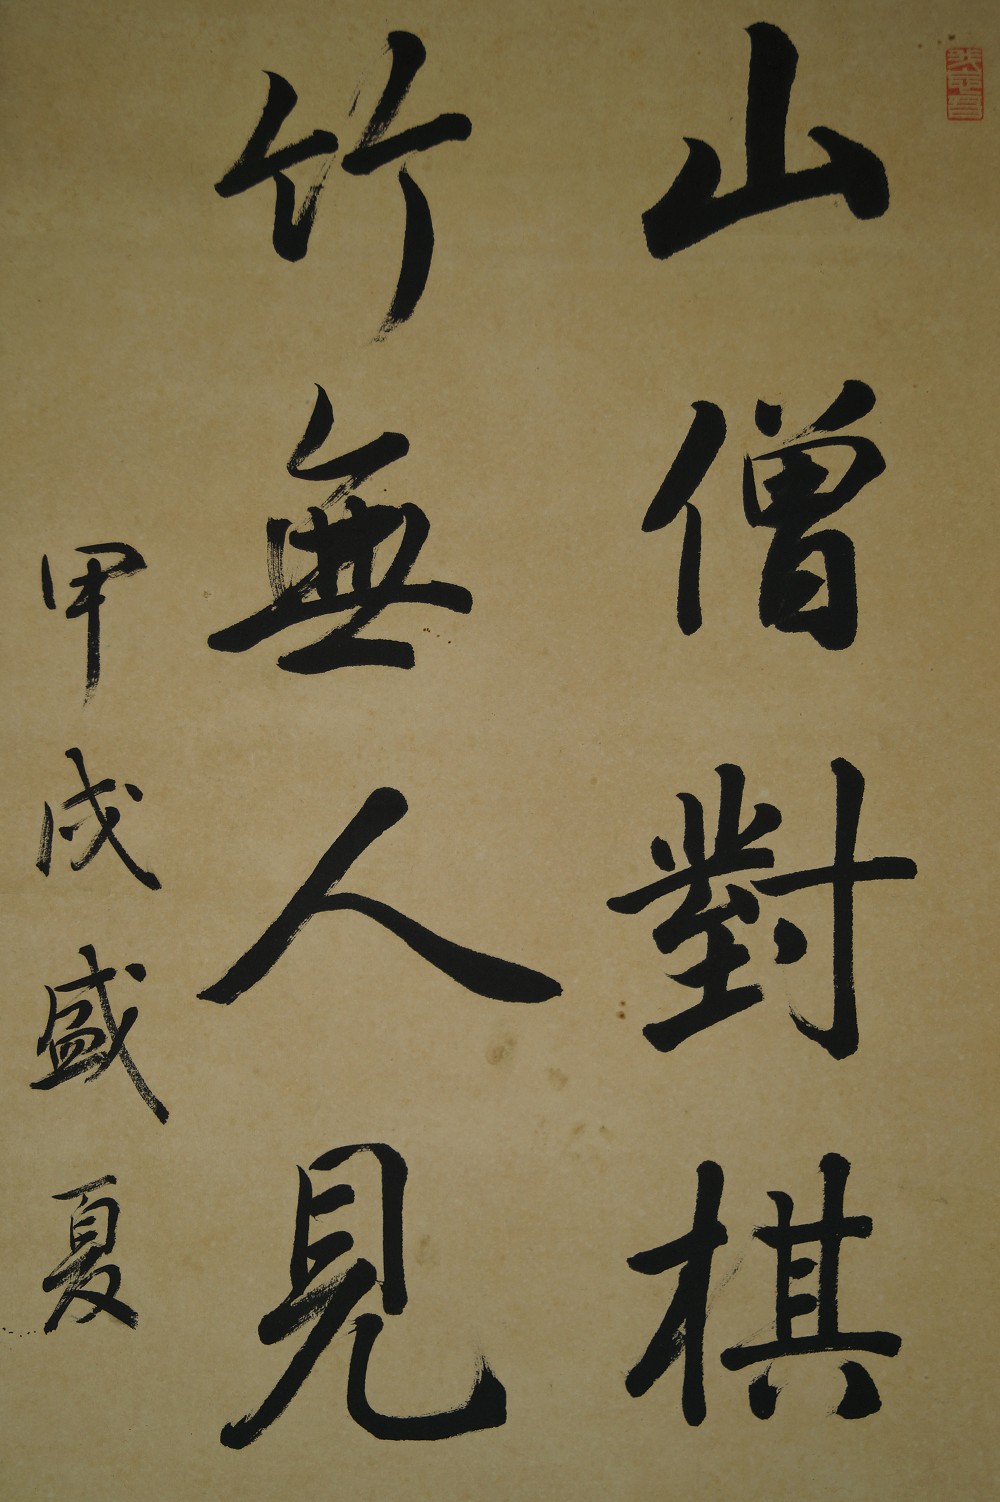 山僧對棋
竹無人見
甲戌盛夏